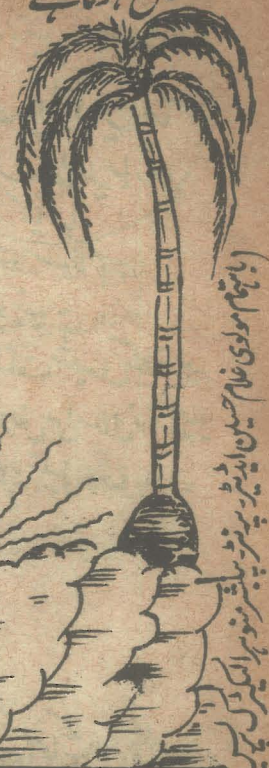 ہے
(باہتمام مولوی غلام حسین ایڈیٹر پرنٹر پبلشر منوہر الیکٹرک پریس